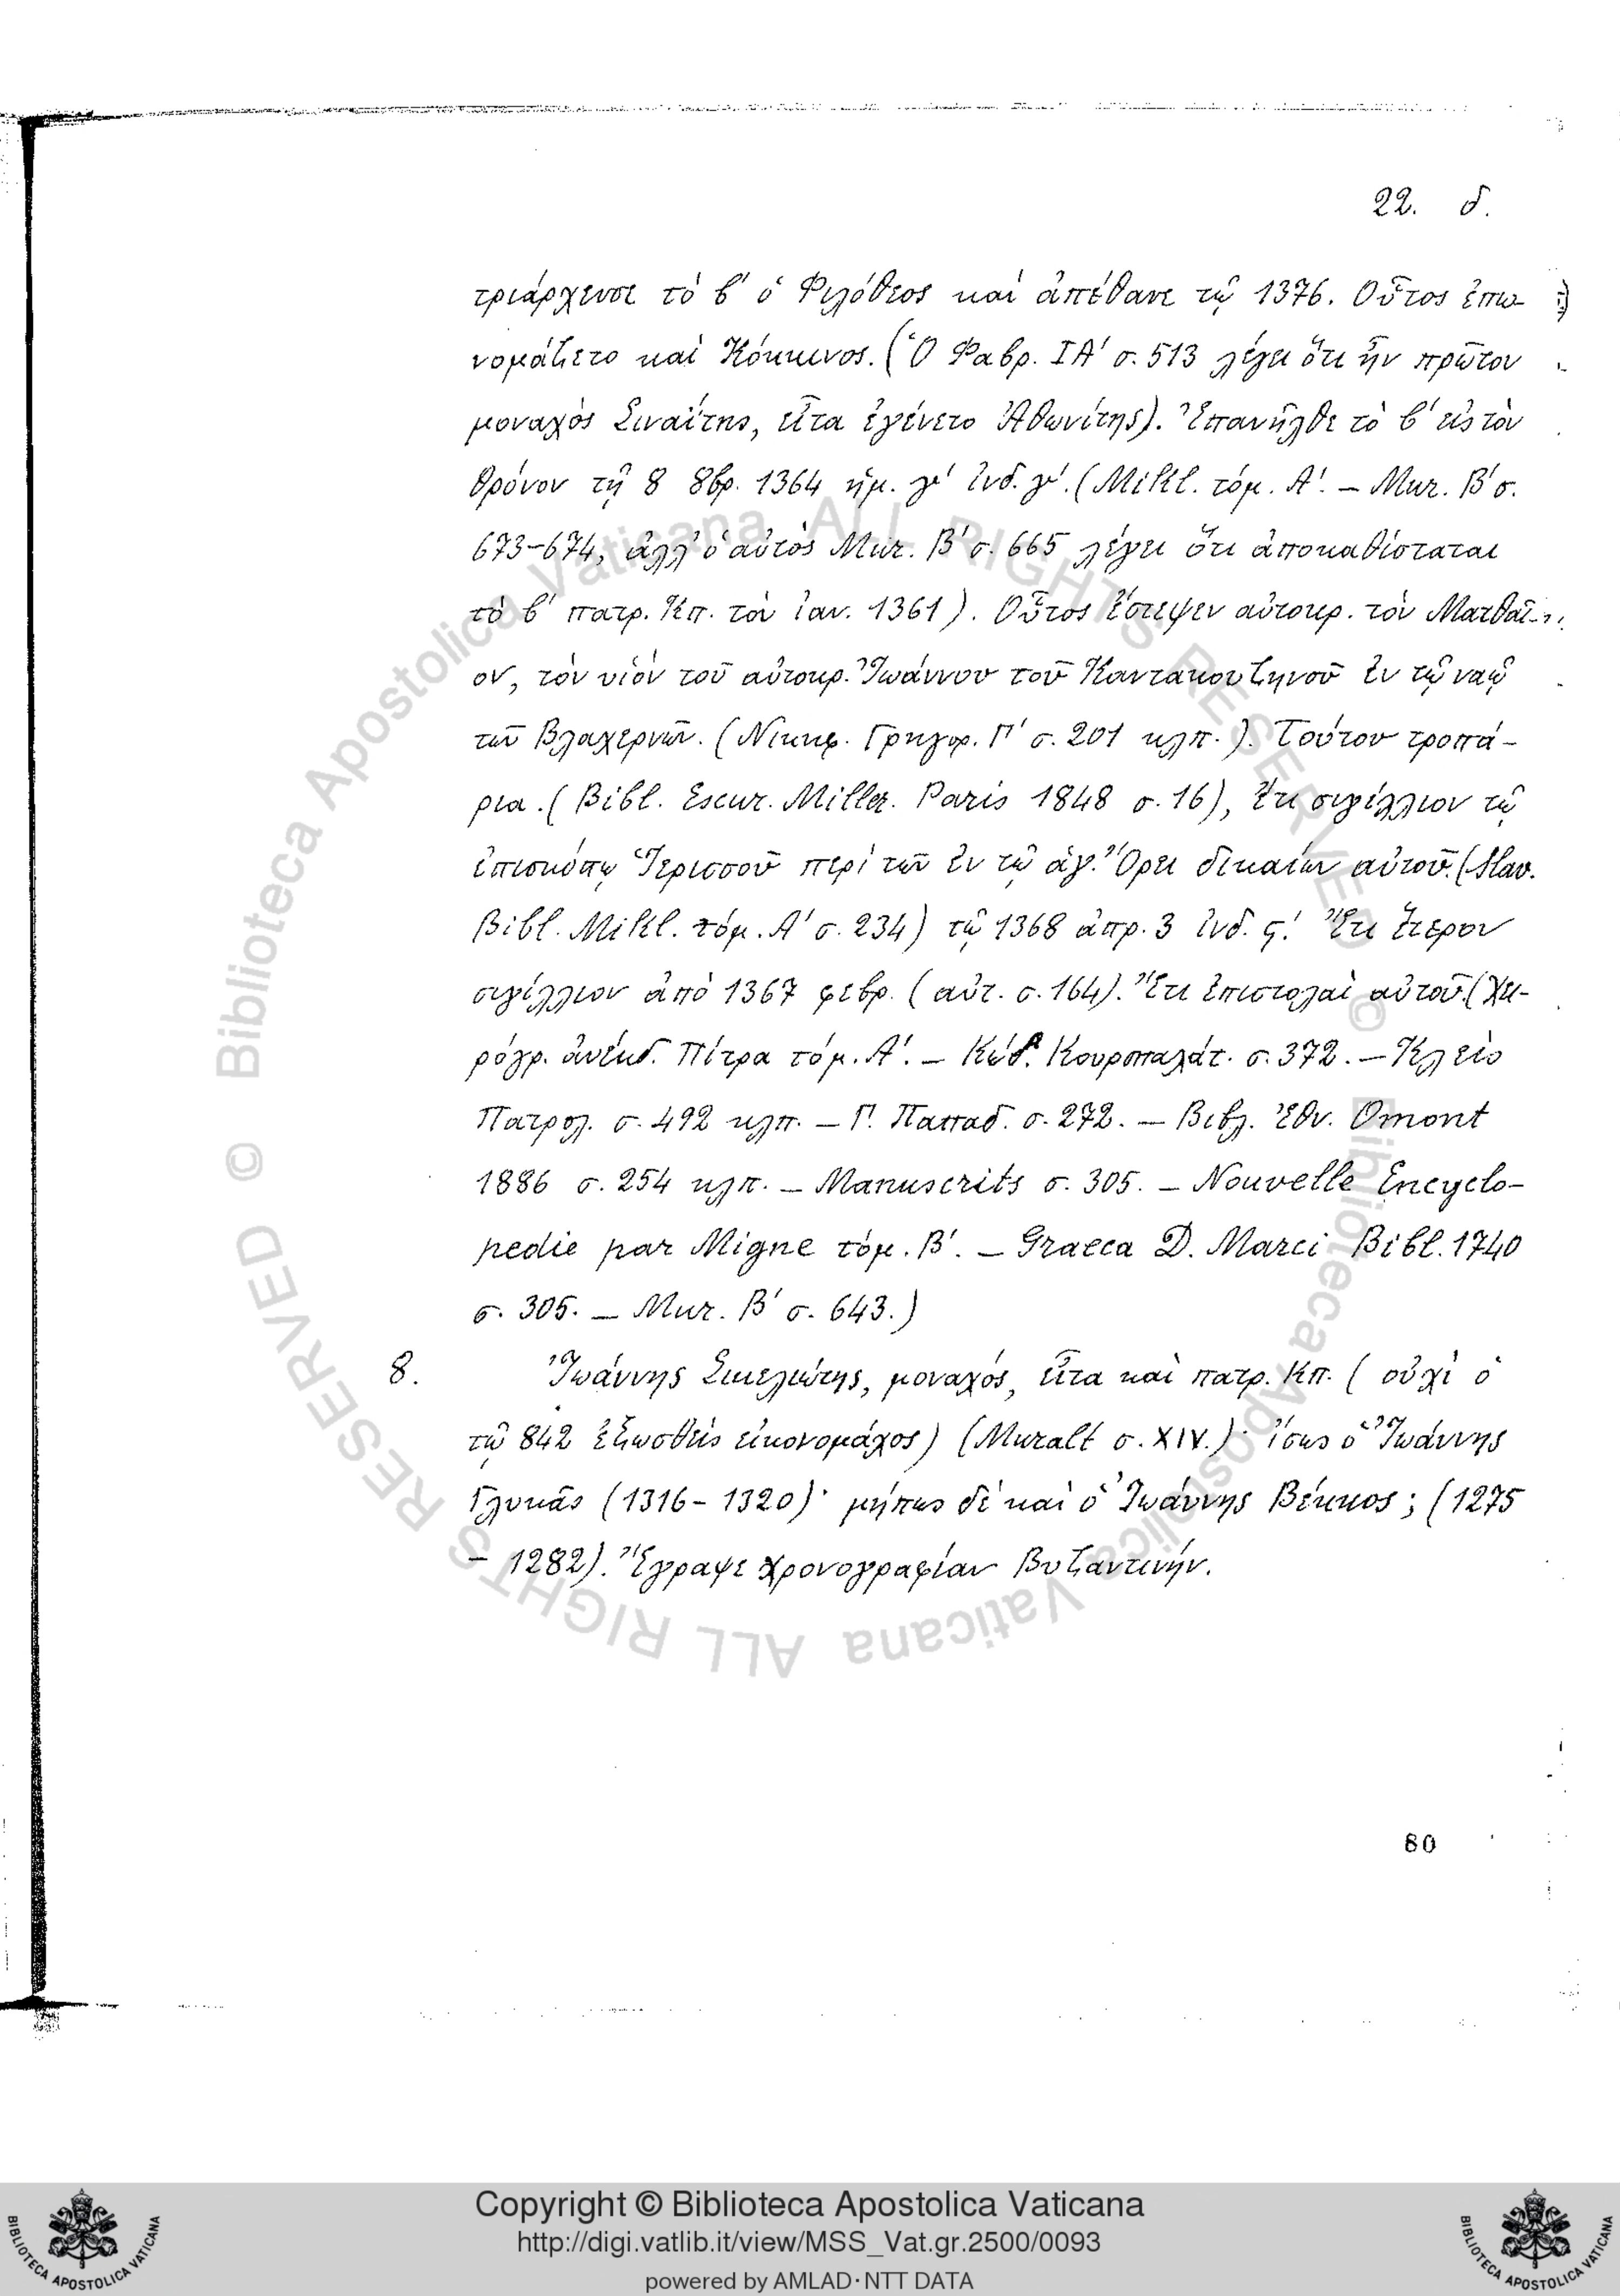 22. δ.
τριάρχευσε τὸ β΄ ὁ Φιλόθεος καὶ ἀπέθανε τῷ 1376. Οὗτος ἐπω-
νομάζετο καὶ Κόκκινος. (Ὁ Φαβρ. ΙΑ΄ σ. 513 λέγει ὅτι ἦν πρῶτον
μοναχὸς Σιναΐτης, εἶτα ἐγένετο Ἀθωνίτης). Ἐπανῆλθε τὸ β΄ εἰς τὸν
θρόνον τῇ 8 8βρ. 1364 ἡμ. γ΄ ἰνδ. γ΄. (Mikl. τόμ. Α΄. – Mur. Β΄ σ.
673-674, ἀλλ' ὁ αὐτὸς Mur. Β΄ σ. 665 λέγει ὅτι ἀποκαθίσταται
τὸ β΄ πατρ. Κπ. τὸν ἰαν. 1361). Οὗτος ἔστεψεν αὐτοκρ. τὸν Ματθαῖ-
ον, τὸν υἱὸν τοῦ αὐτοκρ. Ἰωάννου τοῦ Καντακουζηνοῦ ἐν τῷ ναῷ
τῶν Βλαχερνῶν. (Νικηφ. Γρηγορ. Γ΄ σ. 201 κλπ.). Τούτου τροπά-
ρια. (Bibl. Escur. Miller. Paris 1848 σ. 16), ἔτι σιγίλλιον τῷ
ἐπισκόπῳ Ἱερισσοῦ περὶ τῶν ἐν τῷ ἁγ. Ὄρει δικαίων αὐτοῦ. (Slav.
Bibl. Mikl. τόμ. Α΄ σ. 234) τῷ 1368 ἀπρ. 3 ἰνδ. ϛ΄. Ἔτι ἕτερον
σιγίλλιον ἀπὸ 1367 φεβρ. (αὐτ. σ. 164). Ἔτι ἐπιστολαὶ αὐτοῦ. (Χει-
ρόγρ. ἀνέκδ. Πίτρα τόμ. Α΄. – Κώδ. Κουροπαλάτ. σ. 372. – Κλεὶς
Πατρολ. σ. 492 κλπ. – Γ. Παπαδ. σ. 272. – Βιβλ. Ἐθν. Omont
1886 σ. 254 κλπ. – Manuscrits σ. 305. – Nouvelle Encyclo-
pedie par Migne τόμ. Β΄. – Graeca D. Marci Bibl. 1740
σ. 305. – Mur. Β΄ σ. 643.)
8. Ἰωάννης Σικελιώτης, μοναχός, εἶτα καὶ πατρ. Κπ. (οὐχὶ ὁ
τῷ 842 ἐξωσθεὶς εἰκονομάχος) (Muralt σ. XIV.)· ἴσως ὁ Ἰωάννης
Γλυκᾶς (1316-1320)· μήπως δὲ καὶ ὁ Ἰωάννης Βέκκος; (1275
– 1282). Ἔγραψε χρονογραφίαν Βυζαντινήν.
80
© Biblioteca Apostolica Vaticana ALL RIGHTS RESERVED
© Biblioteca Apostolica Vaticana ALL RIGHTS RESERVED
Copyright © Biblioteca Apostolica Vaticana
http://digi.vatlib.it/view/MSS_Vat.gr.2500/0093
powered by AMLAD·NTT DATA
BIBLIOTECA APOSTOLICA VATICANA
BIBLIOTECA APOSTOLICA VATICANA